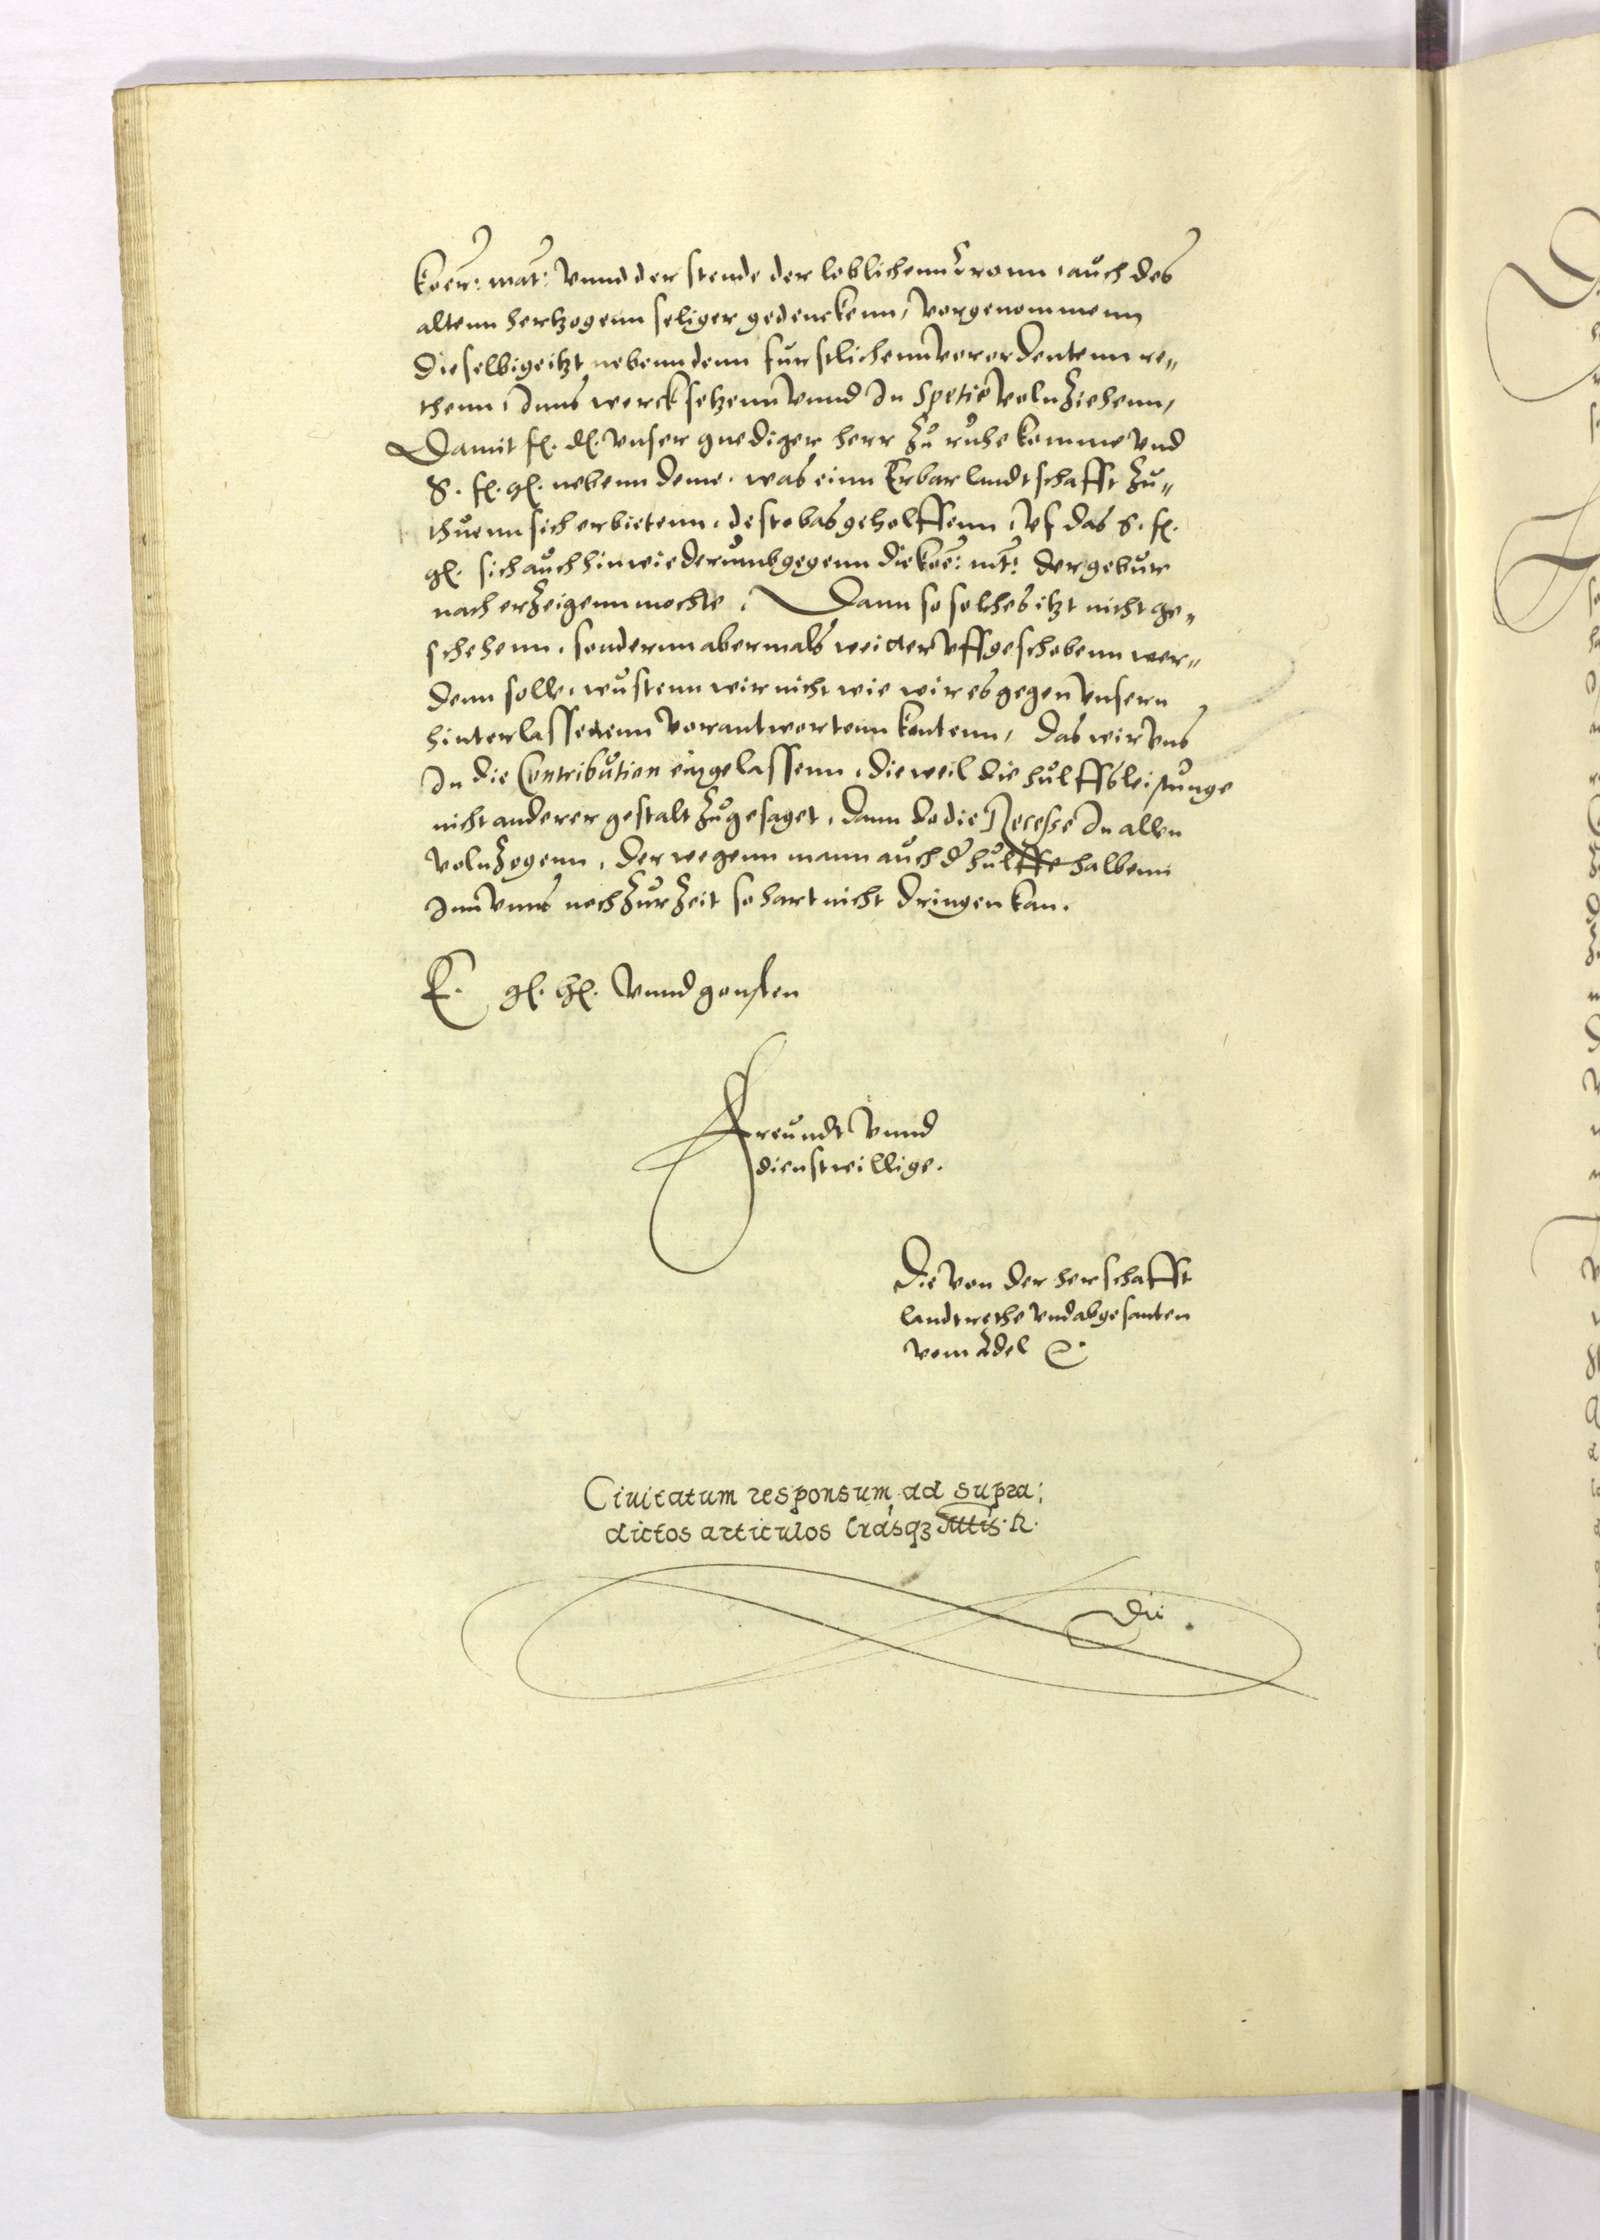 Koer: mat: vnnd der stende der loblichenn Cronn, auch des
altenn hertzogenn seliger gedenckenn, vorgenommenn
dieselbige itzt nebenn denn furstlichenn vorordentenn re„
thenn, Inns werck setzenn vnnd In Spetie volnziehenn,
Damit f. d. vnser gnediger herr zu ruhe komme vnd
S. f. g. nebenn deme, was einn Erbar landtschafft zu„
thuenn sich erbietenn, desto bas geholffenn, vf das S. f.
g. sich auch hinwiederumb gegenn die koe: mt: der gebur
nach erzeigenn mochte. Dann so solches itzt nicht ge„
schehenn, sondernn abermals weitter vffgeschobenn wer„
denn solle, wustenn wir nicht wie wir es gegen vnsern
hinterlassenenn vorantwortenn kontenn, das wir vns
In die Contribution eingelassenn, dieweil die hulffsleistunge
nicht anderer gestalt zugesaget, dann do die Recesse In allen
volnzogenn, derwegenn mann auch d hulffe halbenn
Inn vnns noch zur zeit so hart nicht dringen kan.
E. g. h. vnnd gonsten
Freundt vnnd
dienstwillige.
Die von der herschafft
landtrethe vnd abgesanten
vom Adel
Ciuitatum responsum ad supra:
dictos articulos lrasq3
Die